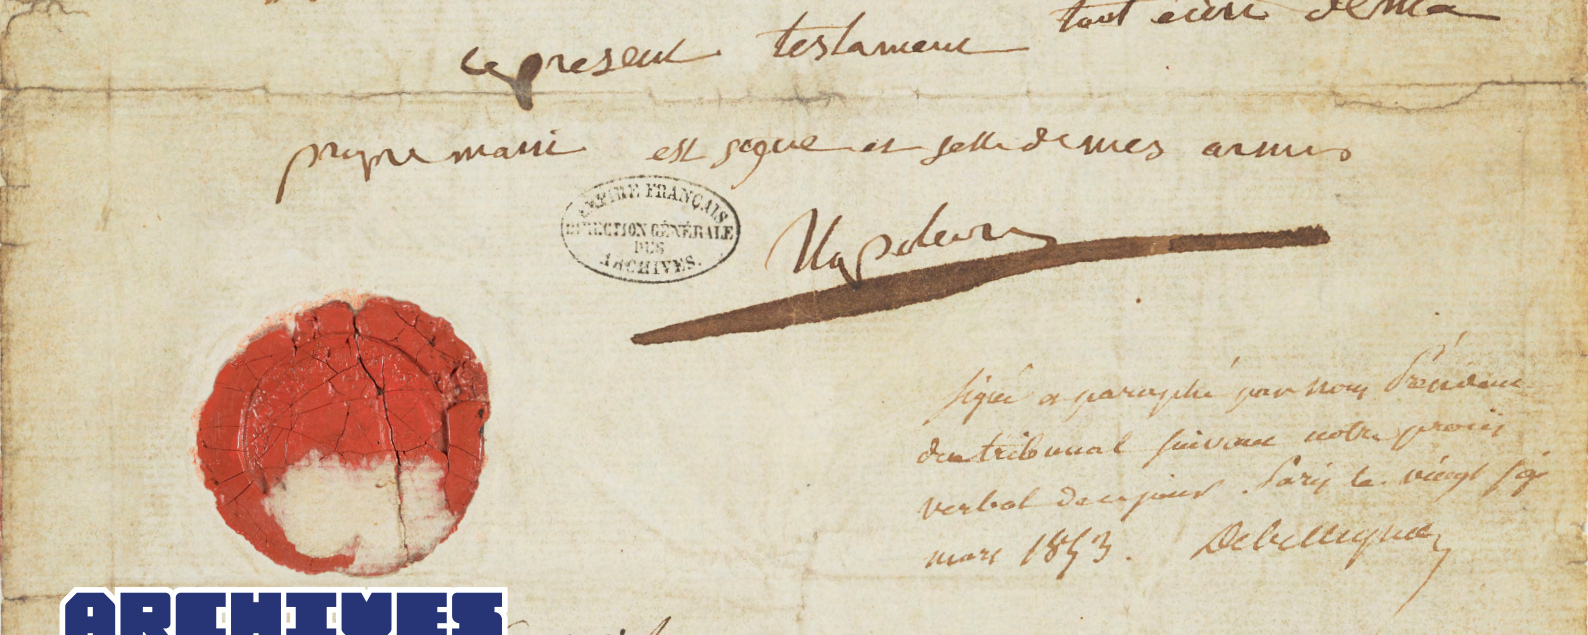 ce present testament tout ecrit de ma
propre main est signé et sellé de mes armes
EMPIRE FRANÇAIS
DIRECTION GÉNÉRALE
DES
ARCHIVES.
Napoleon
Signé et paraphé par nous Président
du tribunal suivant notre procès
verbal de ce jour. Paris le vingt six
mars 1853.
ARCHIVES